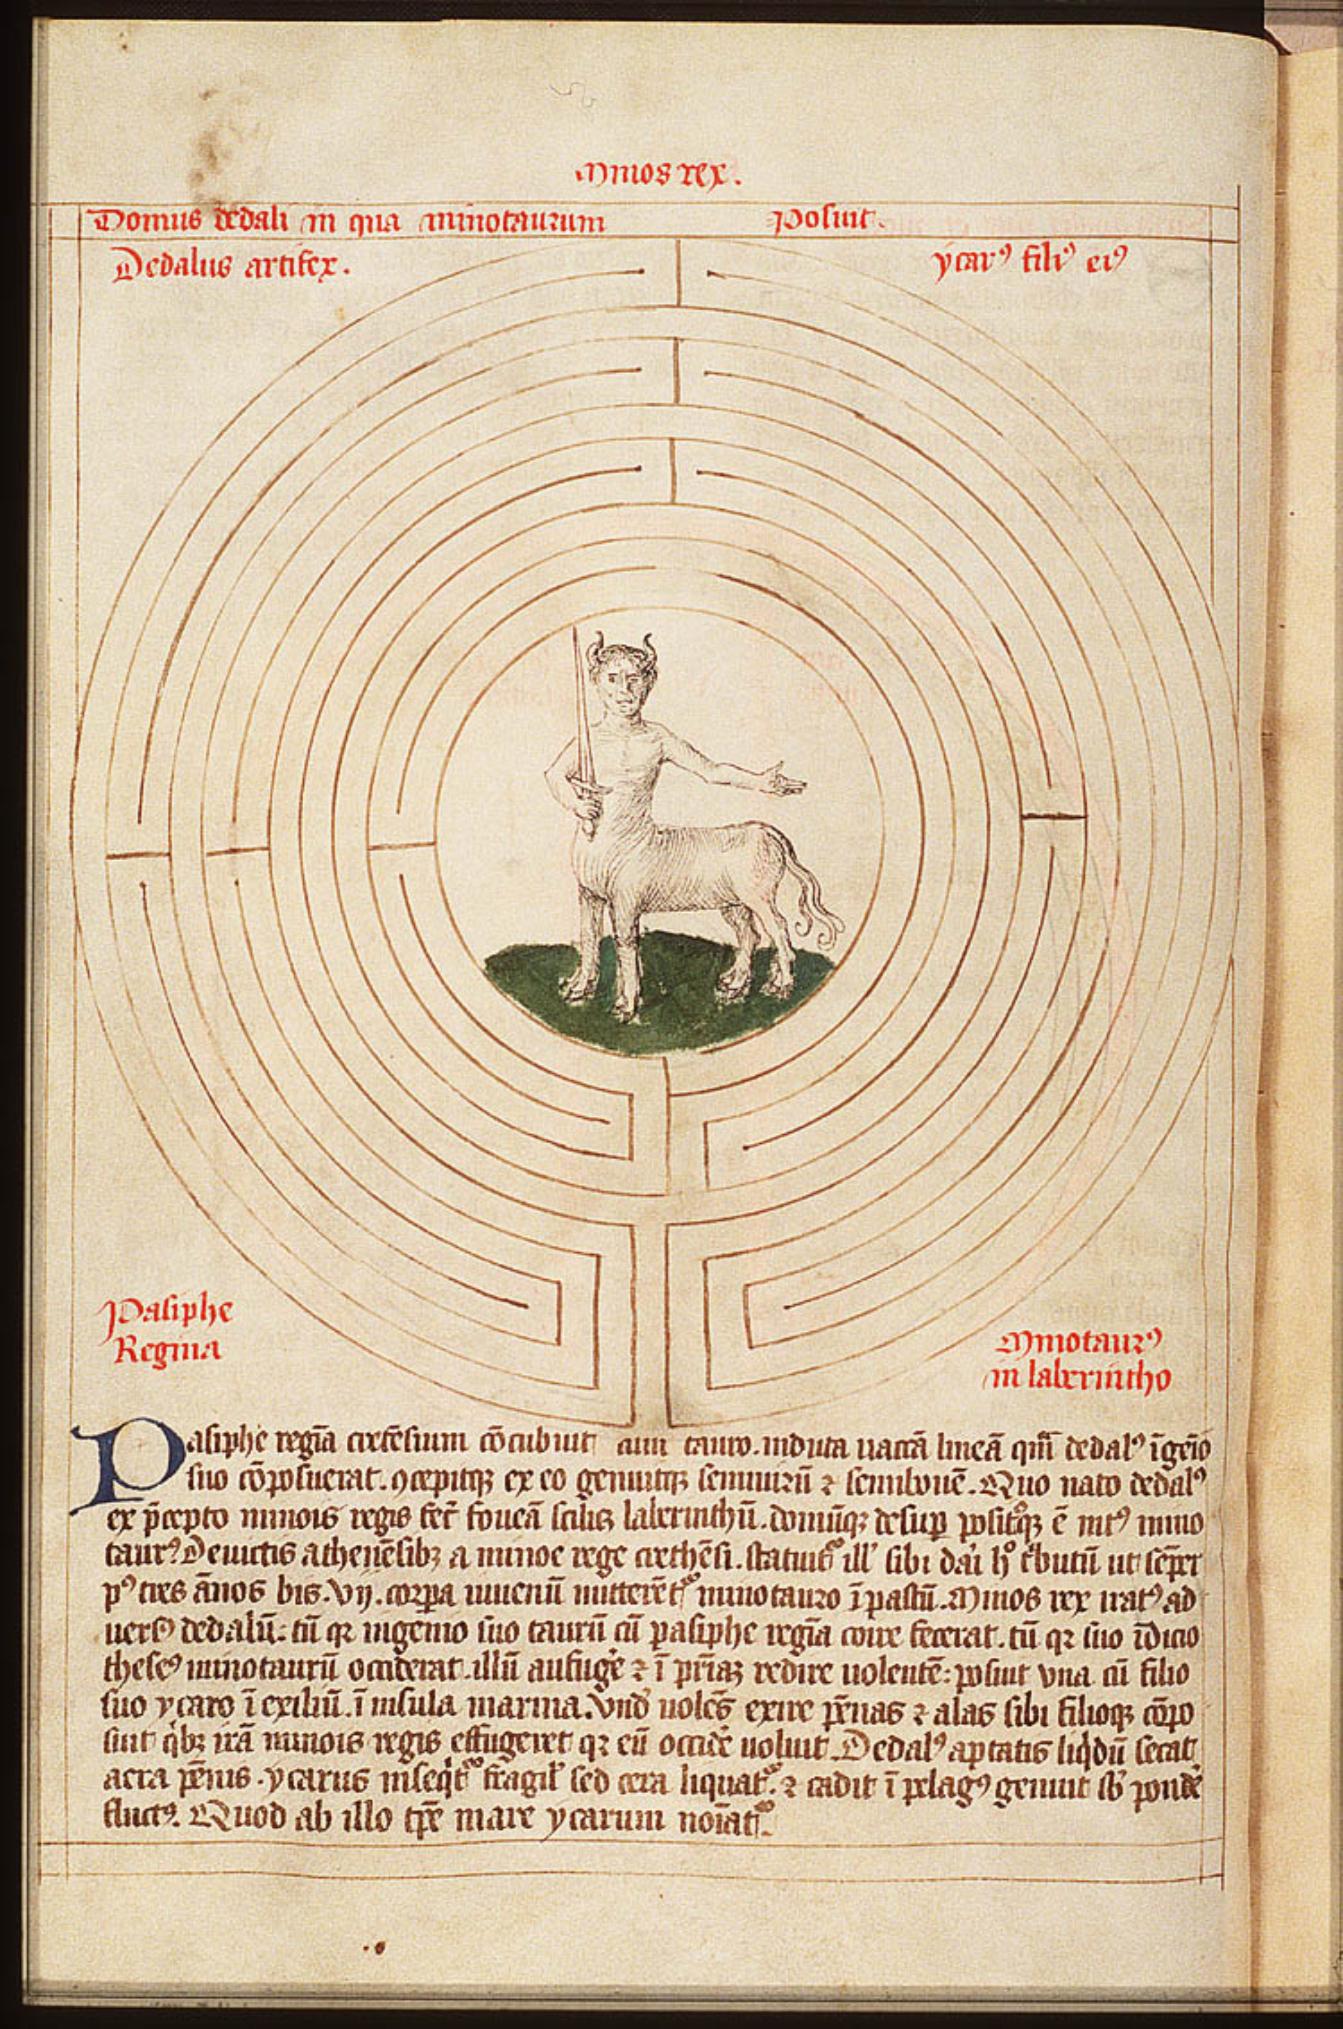 Minos rex.
Domus dedali in qua minotaurum posuit.
Dedalus artifex.
ycar⁹ fili⁹ ei⁹
Pasiphe
Regina
Minotaur⁹
in laberintho
Pasiphe regīa cretēsium cōcubuit cum tauro. induta uaccā lineā quā dedal⁹ īgēio
suo cōposuerat. ꝯcepitqꝫ ex eo genuitqꝫ semiuirū ⁊ semibouē. Quo nato dedal⁹
ex p̄cepto minois regis fec̄ foueā scilicꝫ laberinthū. domūqꝫ desup positꝰqꝫ ē int⁹ mino
taur⁹. Deuictis atheniēsibꝫ a minoe rege crethēsi. statuit ill' sibi dari h° tͥbutū ut semꝑ
p⁹ tres ānos bis .vij. corꝑa iuuenū mitterēt᷑ minotauro ī pastū. Minos rex irat⁹ ad
uers⁹ dedalū. tū qꝛ ingenio suo taurū cū pasiphe regīa coire fecerat. tū qꝛ suo īdicio
these⁹ minotaurū occiderat. illū aufuge᷑ ⁊ ī pr̄iaꝫ redire uolentē. posuit vna cū filio
suo ycaro ī exiliū ī insula marina. Vnd̄ uolēs exire pēnas ⁊ alas sibi filioqꝫ cōpo
suit qͥbꝫ irā minois regis effugeret qꝛ eū occide᷑ uoluit. Dedal⁹ aptatis liqͥdū secat
aera pēnis. ycarus inseqͥt᷑ fragil' sed cera liquat᷑. ⁊ cadit ī pelag⁹ gemuit sb̄ pond̄e
fluct⁹. Quod ab illo tp̄e mare ycarum noīat᷑.